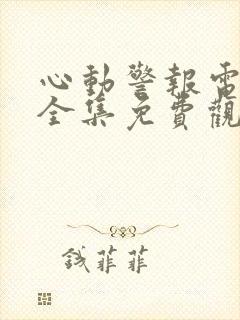 心動警報電
全集免費觀
錢菲菲